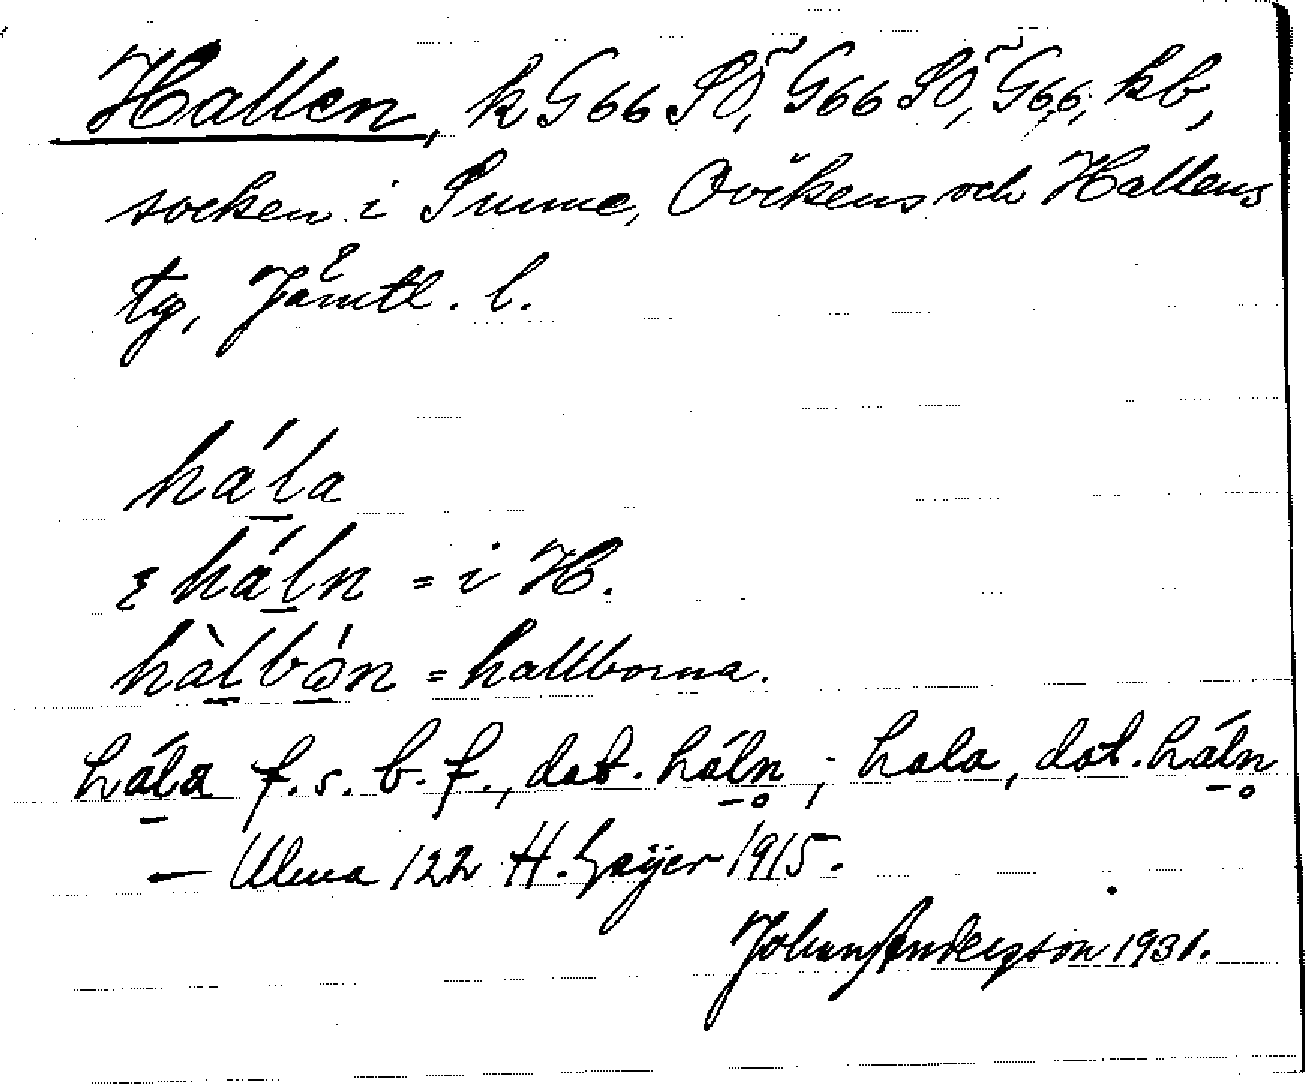 Hallen, k G66 SÖ, G66 SÖ, G66, kb,
socken i Sunne, Ovikens och Hallens
tg, Jämtl. l.
há̱la
ɛ há̱ln = i H.
hà̱lbó̱n = hallborna.
há̱la f. s. b. f., dat. hálṇ; hala, dat. hálṇ
— Ulma 122 H. Geijer 1915.
Johan Anderzson 1931.